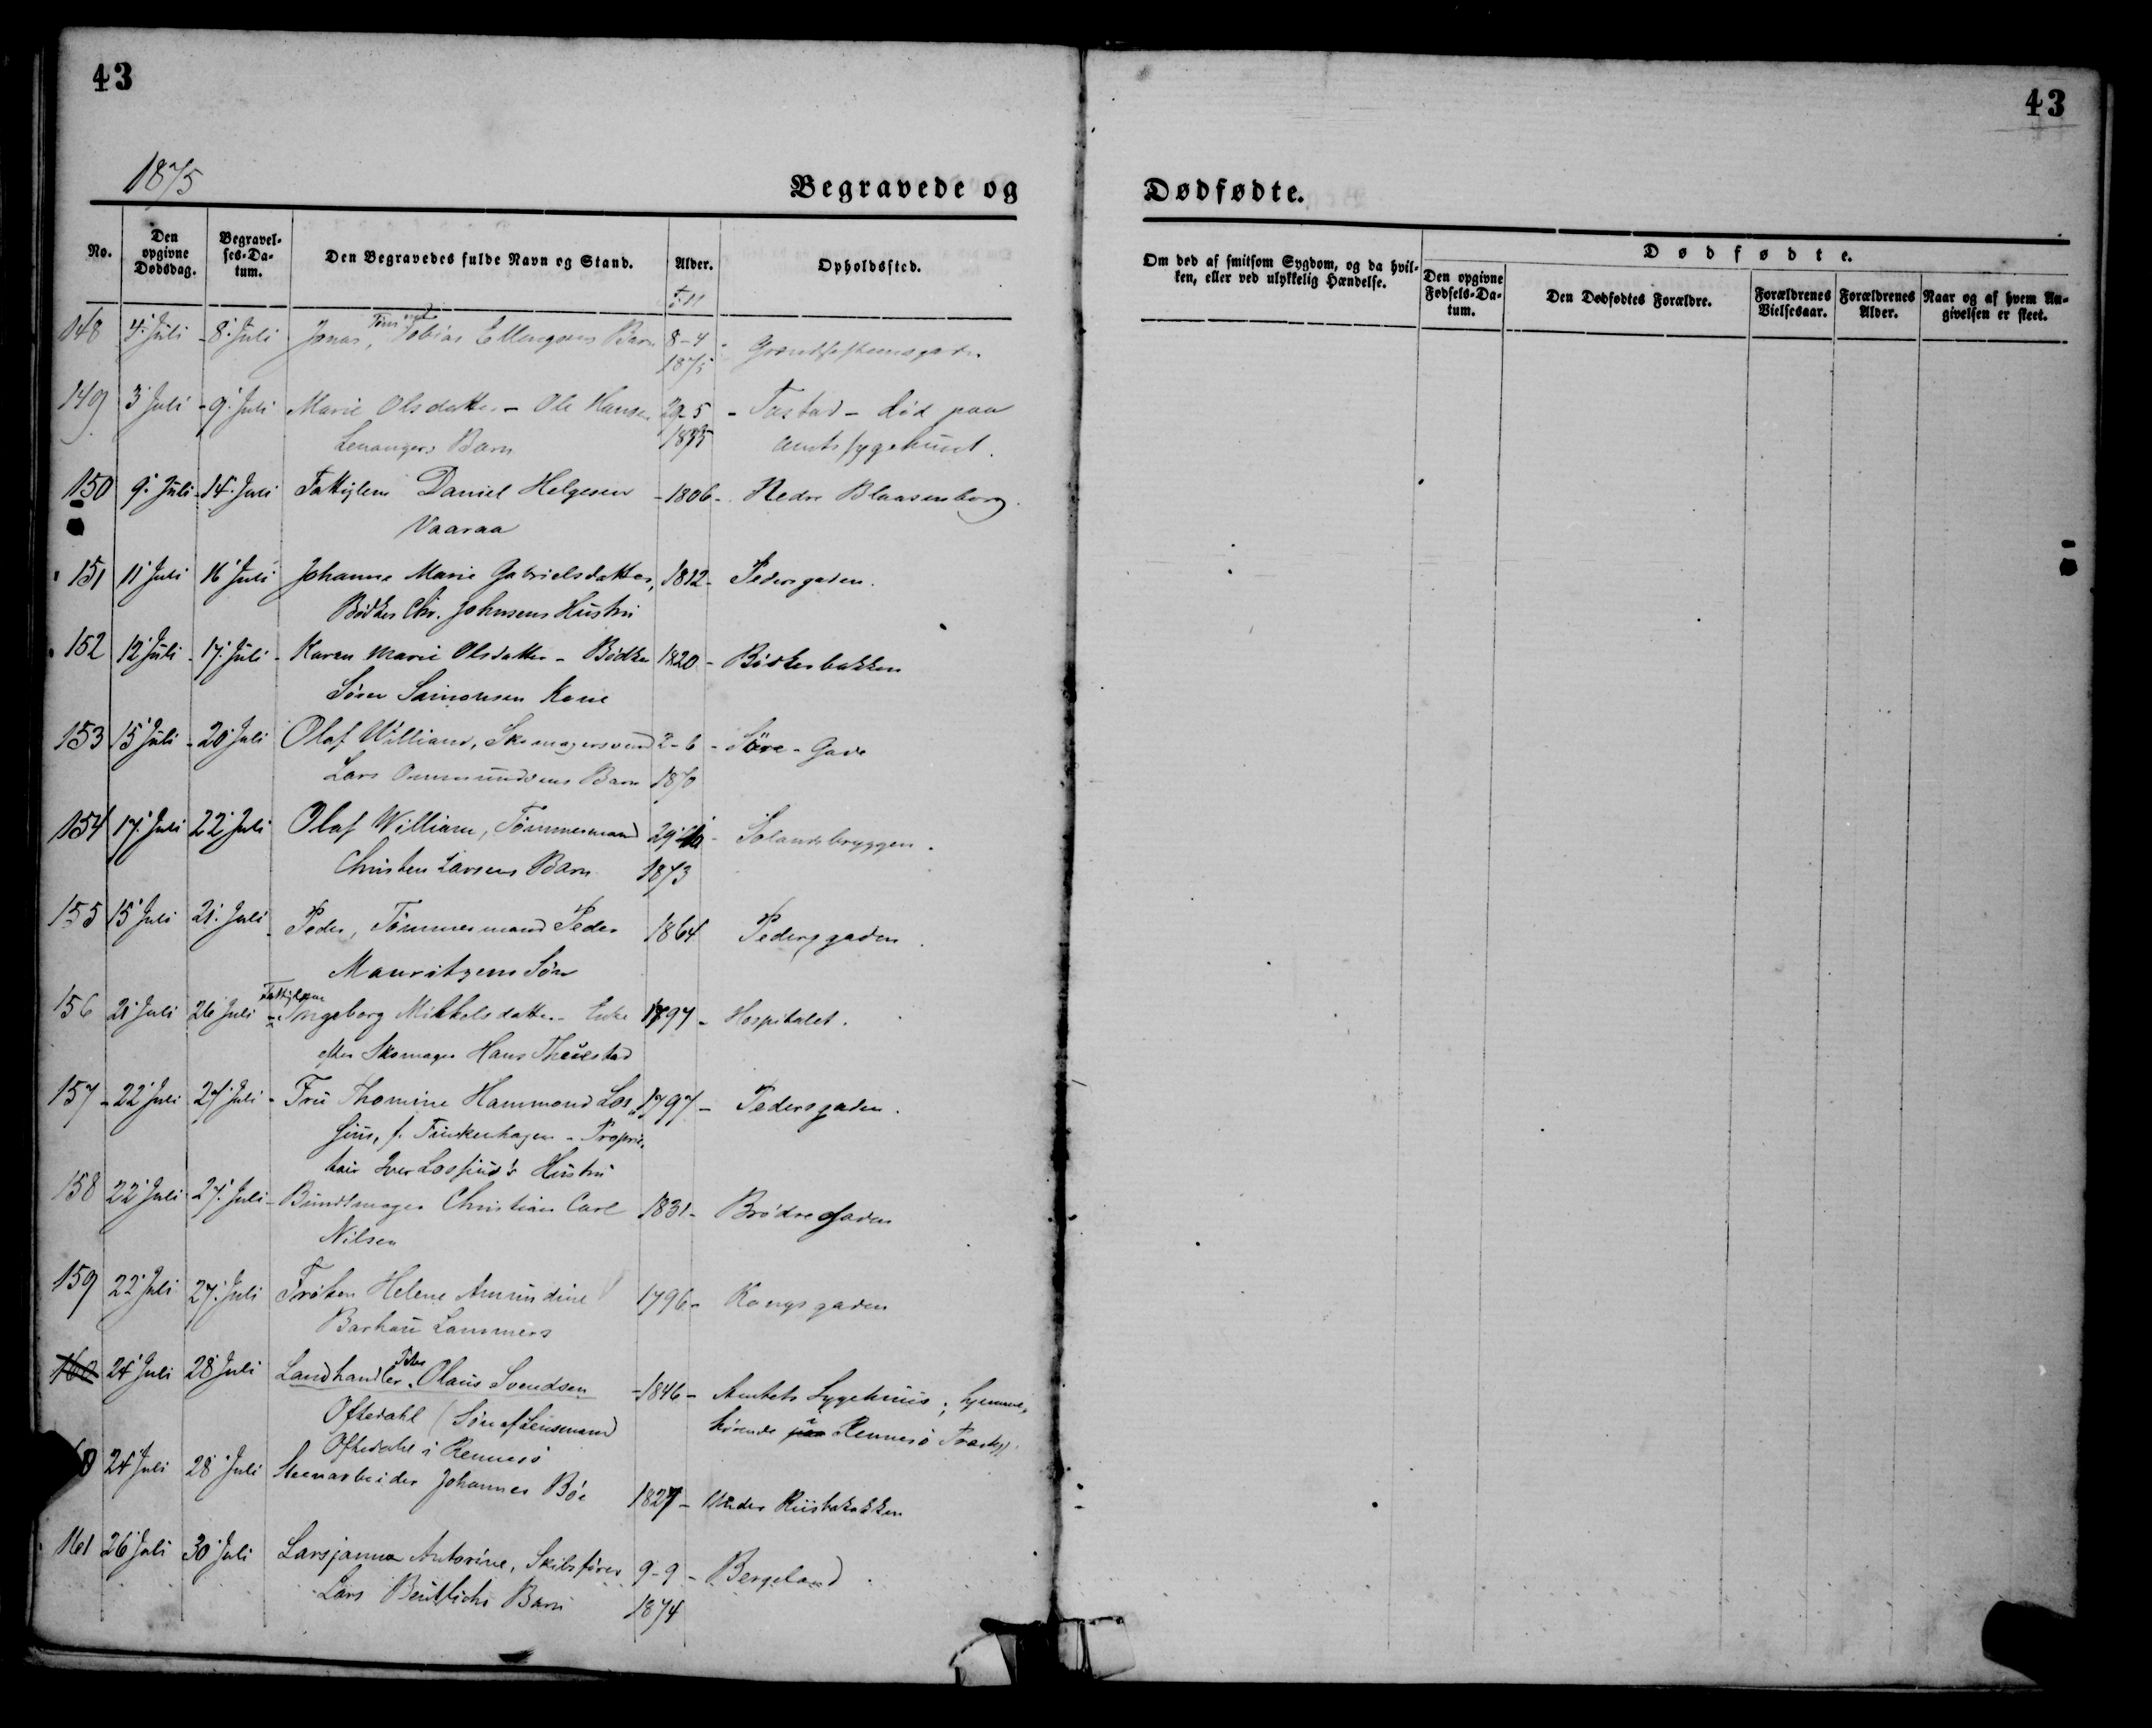 43
43
1875
Begravede og
Dødfødte.
No.
Den opgivne Dødsdag.
Begravel-ses-Da-tum.
Den Begravedes fulde Navn og Stand.
Alder.
Opholdssted.
Om død af smitsom Sygdom, og da hvil-ken, eller ved ulykkelig Hændelse.
Dødfødte.
Den opgivne Fødsels-Da-tum.
Den Dødfødtes Forældre.
Forældrenes Vielsesaar.
Forældrenes Alder.
Naar og af hvem An-givelsen er skeet.
148 4' Juli - 8' Juli Jonas, Tobias Ellingsens Barn 8-4
1875
149 3' Juli - 9' Juli Marie Olsdatter - Ole Hansen 29-5 - Tastad - død paa
Barn 1835 Amtssygehuset.
150 9' Juli - 14' Juli Fattiglem Daniel Helgesen - 1806 - Nedre Blaasenborg.
Vaaraa
151 11' Juli 16' Juli Johanne Marie Gabrielsdatter, 1812 - Pedersgaden.
Bødker Chr. Johnsens Hustru
152 12' Juli - 17' Juli - Karen Marie Olsdatter - Bødker 1820 - Bødkerbakken
Søren Kone
153 15' Juli - 20' Juli Olaf William, Skomagersvend 2-6 - Gade
Lars Ommundsens Barn 1870
154 17' Juli 22' Juli Olaf William, Tømmermand 29- Solandsbryggen.
Christen Larsens Barn 1873
155 15' Juli 21' Juli - Peder, Tømmermand Peder 1864 Pedersgaden.
Mauritzens Søn
156 21' Juli 26' Juli - Fattiglem Ingeborg Mikkelsdatter - Enke 1797 - Hospitalet.
efter Skomager Hans
157 - 22' Juli 27' Juli - Fru Thomine Hammond Los- 1797 - Pedersgaden.
sius, f. Finkenhagen - Proprie-
tair Iver Lossius's Hustru
158 22' Juli 27' Juli - Bundtmager Christian Carl 1831 - Brødregaden
Nilsen
159 22' Juli 27' Juli Frøken Helene Amundine 1796 - Kongsgaden
Lammers
160 24' Juli 28' Juli Landhandler Peder Olaus Svendsen - 1846 - Amtets Sygehuus; hjemme-
Oftedahl (Søn af Lensmand hørende i Rennesø Præstegj.
Oftedahl i Rennesø
24' Juli 28' Juli Steenarbeider Johannes Bøe 1827 -
161 26' Juli 30' Juli Larsjanna Antorine, Skibsfører 9-9 - Bergeland.
Lars Barn 1874